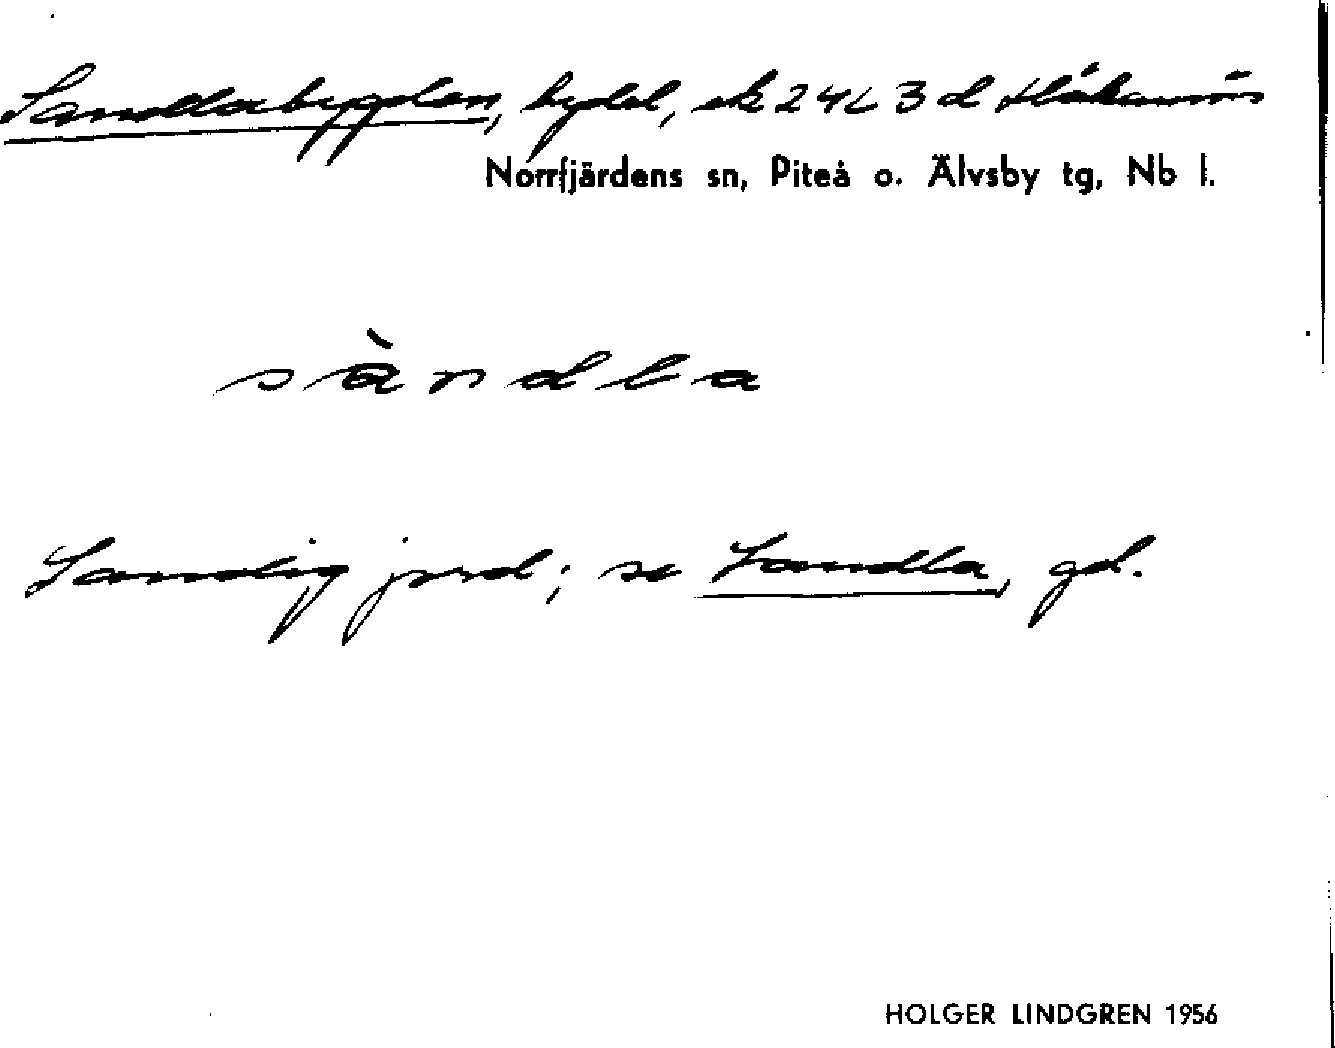 Sandlabygden, bydel, ek 24L 3 d Håkansön
Norrfjärdens sn, Piteå o. Älvsby tg, Nb l.
sàndla
Sandig jord; se Sandla, gd.
HOLGER LINDGREN 1956